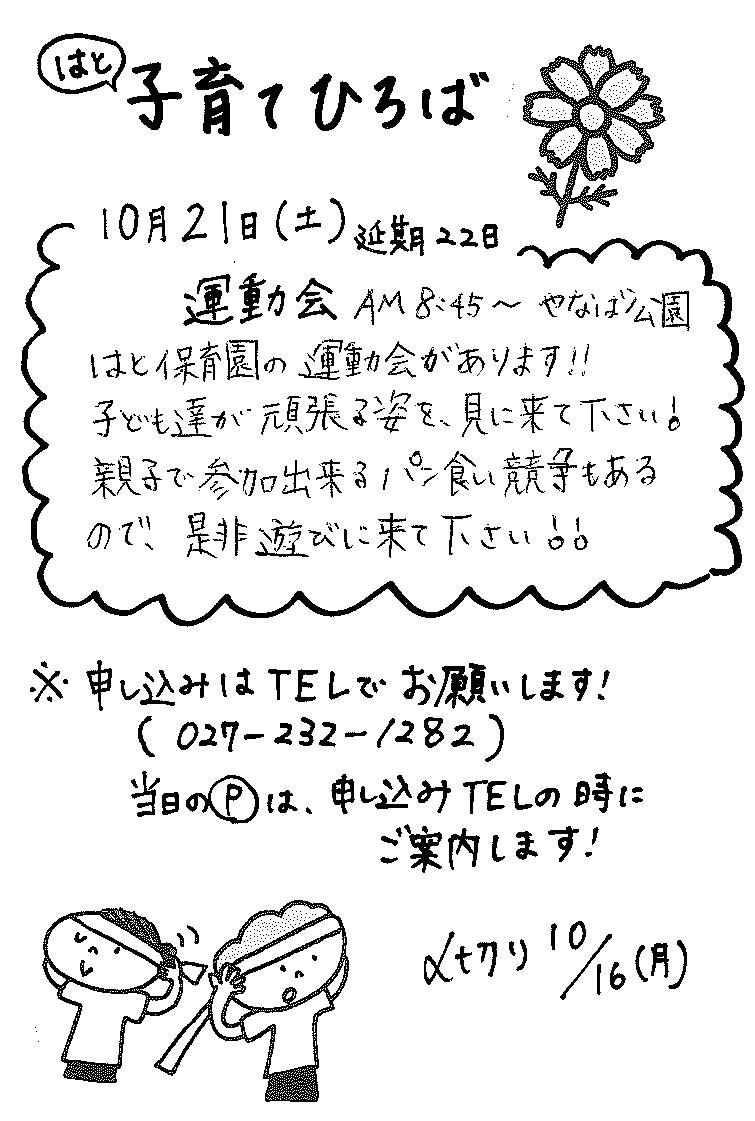 はと
子育てひろば
10月21日(土) 延期22日
運動会 AM 8:45〜 やなばら公園
はと保育園の運動会があります!!
子ども達が頑張る姿を、見に来て下さい!
親子で参加出来るパン食い競争もある
ので、是非遊びに来て下さい!!
※ 申し込みはTELでお願いします!
(027-232-1282)
当日のⓅは、申し込みTELの時に
ご案内します!
〆切り 10/16(月)